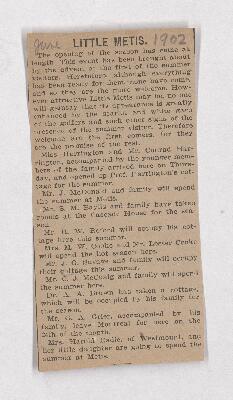 June LITTLE METIS. 1902
The opening of the season has come at
length. This event has been brought about
by the advent of the first of the summer
visitors. Heretofore although everything
has been ready for them none have come,
and so they are the more welcome. How-
ever attractive Little Metis may be, no one
will gainsay that its appearance is greatly
enhanced by the scarlet and white
of the golfers and such other signs of the
presence of the summer visitor. Therefore
welcome are the first comers, for they
are the promise of the rest.
Miss Harrington and Mr. Conrad Har-
rington, accompanied by the younger mem-
bers of the family arrived here on Thurs-
day, and opened up Prof. Harrington's cot-
tage for the summer.
Mr. J. and family will spend
the summer at Metis.
Mr. S. M. Baylis and family have taken
rooms at the Cascade House for the sea-
son.
Mr. R. W. Reford will occupy his cot-
tage here this summer.
Mrs. H. W. Cooke and Mr. Lester Cooke
will spend the hot season here.
Mr. J. G. Savage and family will occupy
their cottage this summer.
Mr. C. J. and family will spend
the summer here.
Dr. A. A. Brown has taken a cottage,
which will be occupied by his family for
the season.
Mr. G. A. Grier, accompanied by his
family, leave Montreal for here on the
of the month.
Mrs. Harold of Westmount, and
her little daughter are going to spend the
summer at Metis.